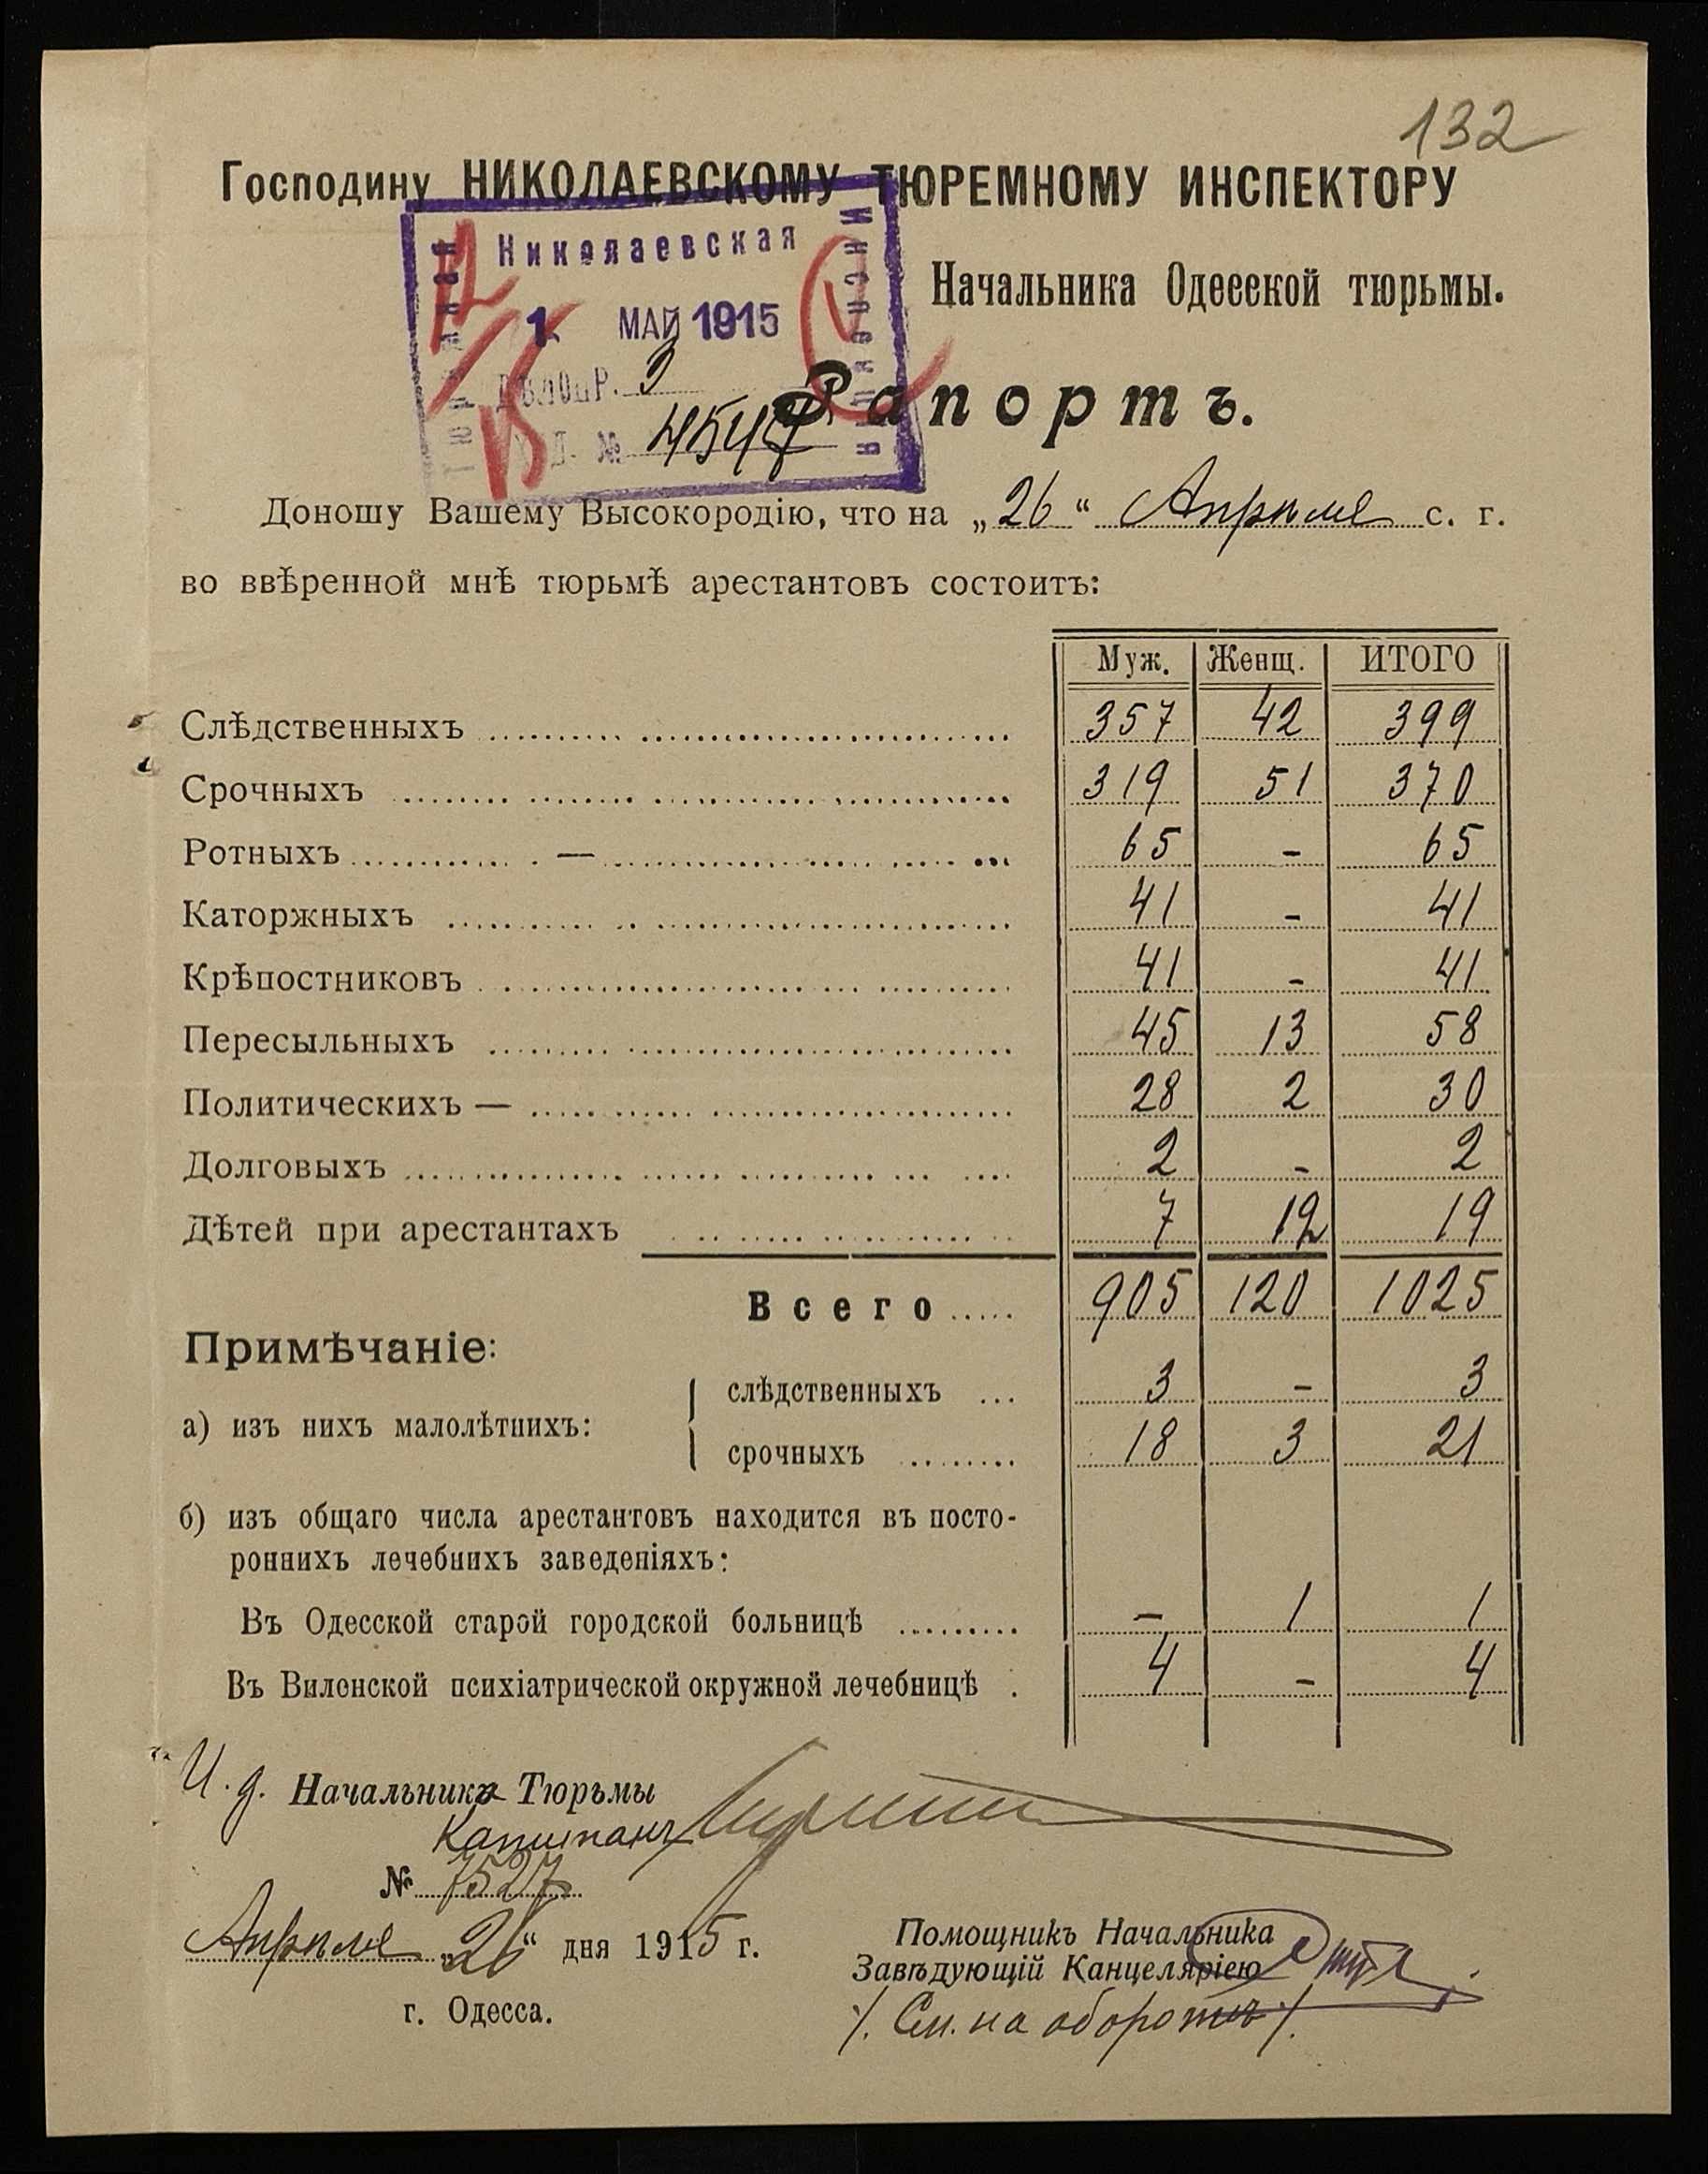 132
Господину НИКОЛАЕВСКОМУ ТЮРЕМНОМУ ИНСПЕКТОРУ
Николаевская
Тюремная
Инспекція
1 МАЙ 1915
ДѢЛОПР. 3
№ 4547
Начальника Одесской тюрьмы.
Рапортъ.
Доношу Вашему Высокородію, что на „26“ Апрѣля с. г.
во ввѣренной мнѣ тюрьмѣ арестантовъ состоитъ:
Муж. Женщ. ИТОГО
Слѣдственныхъ 357 42 399
Срочныхъ 319 51 370
Ротныхъ — 65 - 65
Каторжныхъ 41 - 41
Крѣпостниковъ 41 - 41
Пересыльныхъ 45 13 58
Политическихъ — 28 2 30
Долговыхъ 2 - 2
Дѣтей при арестантахъ 7 12 19
Всего 905 120 1025
Примѣчаніе:
а) изъ нихъ малолѣтнихъ:
слѣдственныхъ 3 - 3
срочныхъ 18 3 21
б) изъ общаго числа арестантовъ находится въ посто-
роннихъ лечебнихъ заведеніяхъ:
Въ Одесской старой городской больницѣ - 1 1
Въ Виленской психіатрической окружной лечебницѣ 4 - 4
И. д. Начальника Тюрьмы
Капитанъ
№ 7527
Апрѣля „26“ дня 1915 г.
г. Одесса.
Помощникъ Начальника
Завѣдующій Канцеляріею
/. См. на оборотѣ /.